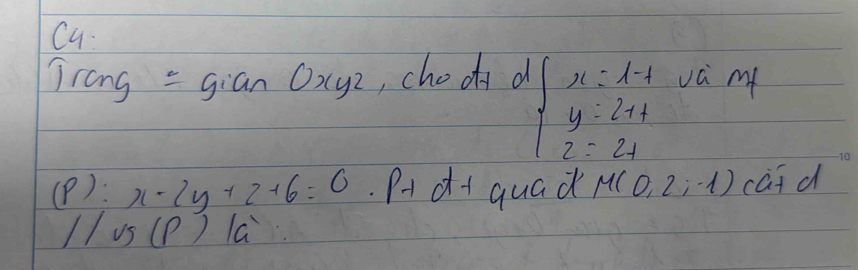 C4:
Trong = gian Oxyz, cho đt d { x = 1-t và mf
y = 2+t
z = 2t
(P): x - 2y + z + 6 = 0 . Pt đt qua đ' M(0,2,-1) cắt d
// vs (P) là: